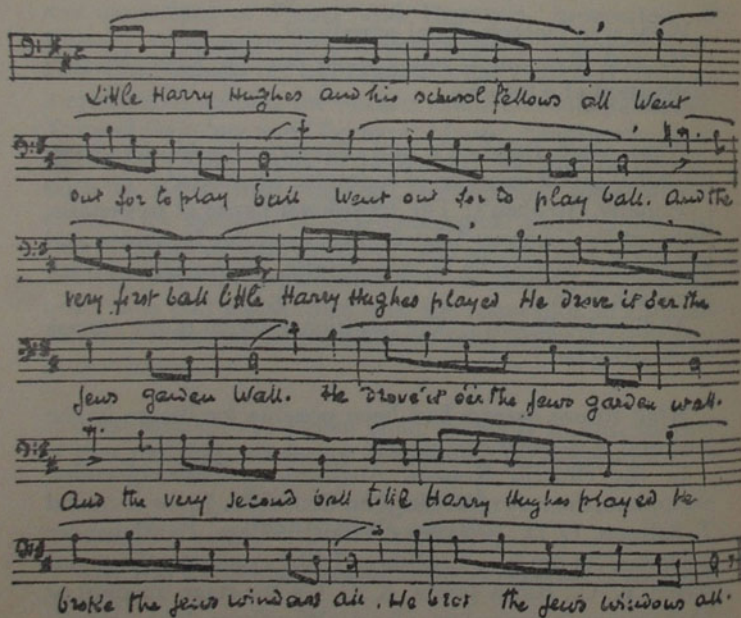 Little Harry Hughes and his school fellows all Went
out for to play ball Went out for to play ball. And the
very first ball little Harry Hughes played He drove it o'er the
jews garden wall. He drove it o'er the jews garden wall.
And the very second ball little Harry Hughes played He
broke the jews windows all. He broke the jews windows all.